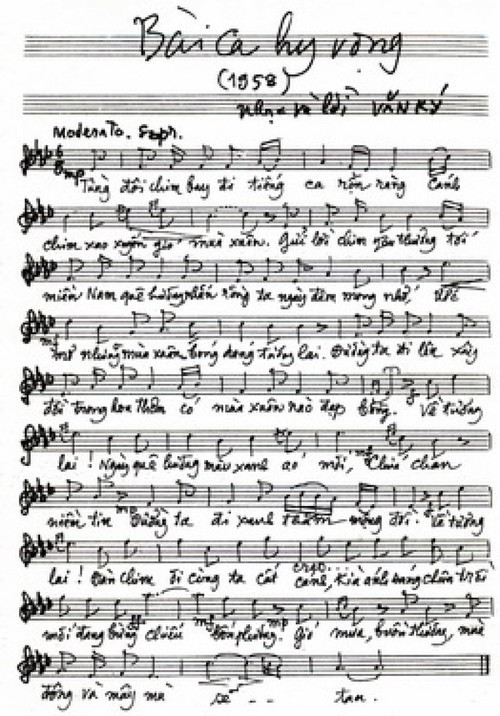 Bài ca hy vọng
(1958)
nhạc và lời VĂN KÝ
Moderato. Sopr.
mp
Từng đôi chim bay đi tiếng ca rộn ràng Cánh
chim xao xuyến gió mùa xuân. Gửi lời chim yêu thương tới
miền Nam quê hương nhắn rằng ta ngày đêm mong nhớ, Ước
mơ những mùa xuân bóng dáng tương lai. Đường ta đi lên xây
đời trong hoa thơm có mùa xuân nào đẹp bằng. Về tương
lai! Ngày quê hương màu xanh áo mới, chan
niềm tin Đường ta đi xanh thắm mộng đời. Về tương
lai! Đàn chim ơi cùng ta cất cánh, Kìa ánh sáng chân trời
mới đang bừng chiếu bốn phương. Gió mưa, buồn thương, mùa
đông và mây mù sẽ tan.